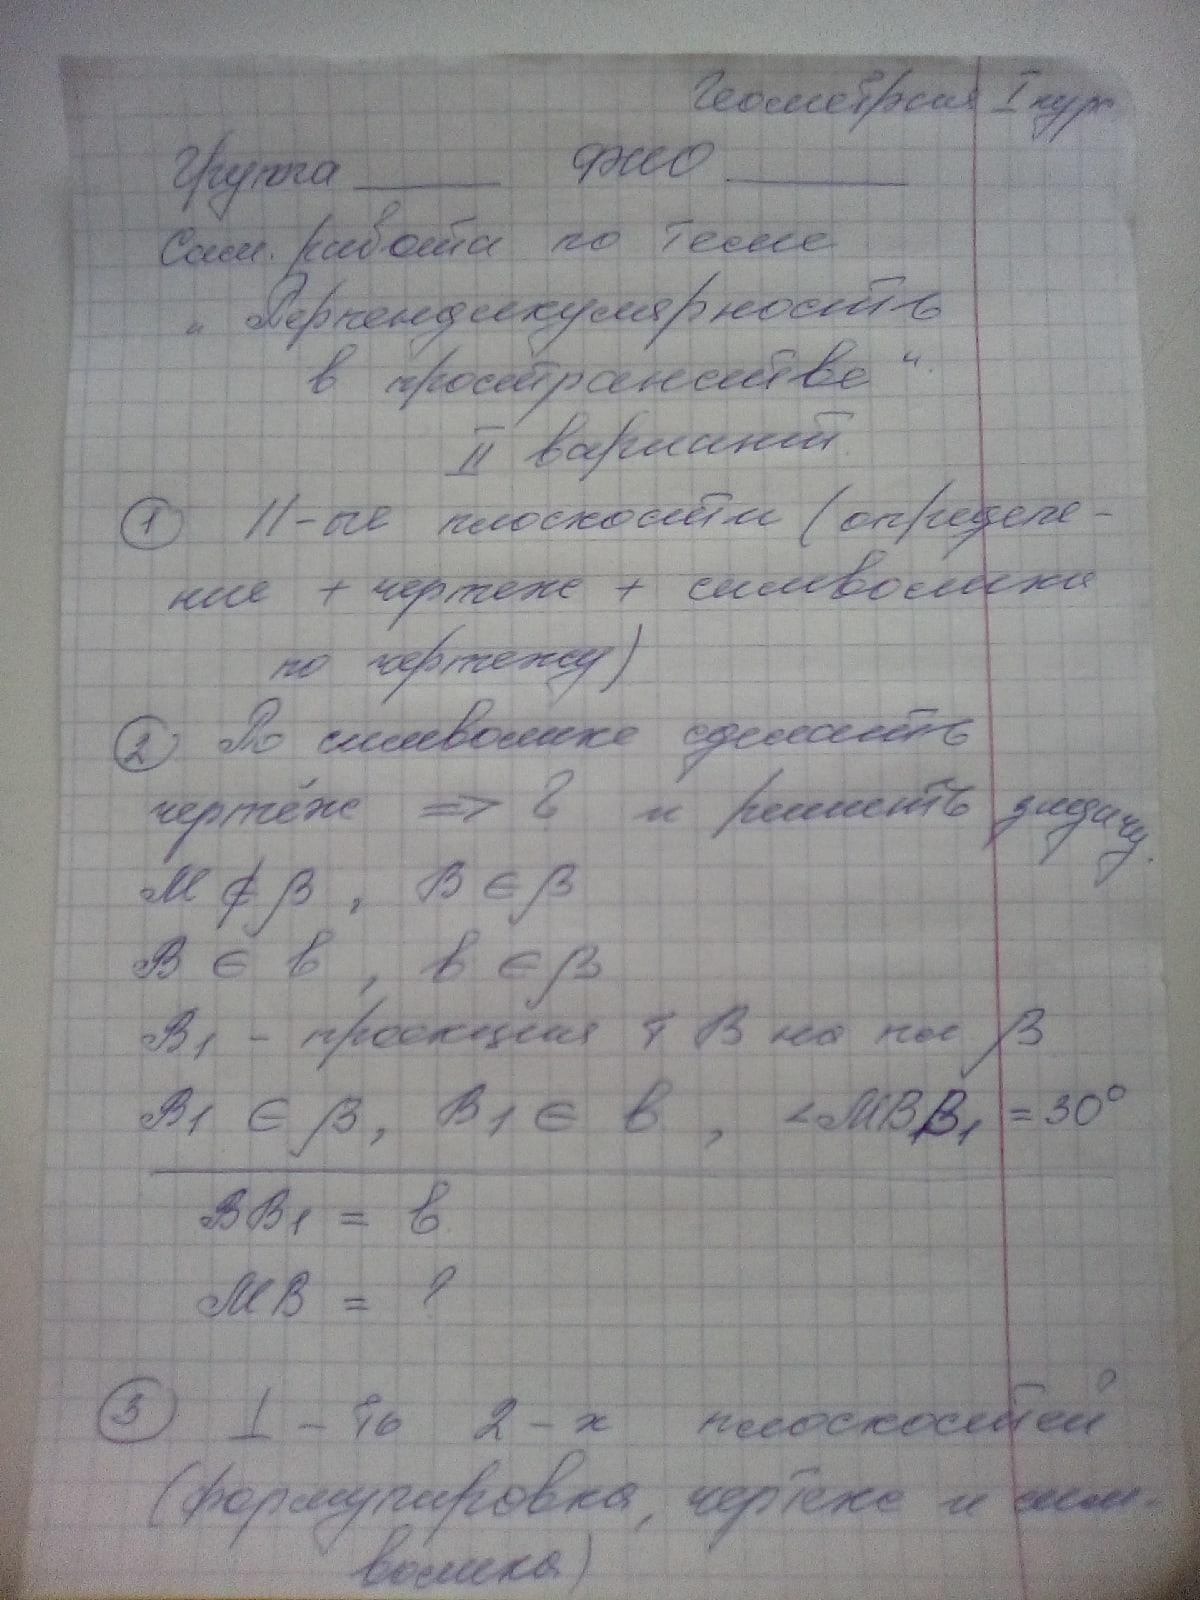 Геометрия I курс
Группа ______ ФИО ______
Сам. работа по теме
„Перпендикулярность
в пространстве“.
II вариант.
① II-ые плоскости (определе-
ние + чертеж + символика
по чертежу)
② По символике сделать
чертёж => ? и решить задачу.
M ∉ β, B ∈ β
B ∈ b, b ∈ β
B₁ - проекция т B на пл β
B₁ ∈ β, B₁ ∈ b, ∠MBB₁ = 30°
BB₁ = b
MB = ?
③ ⊥-ть 2-х плоскостей
(формулировка, чертеж и сим-
волика)